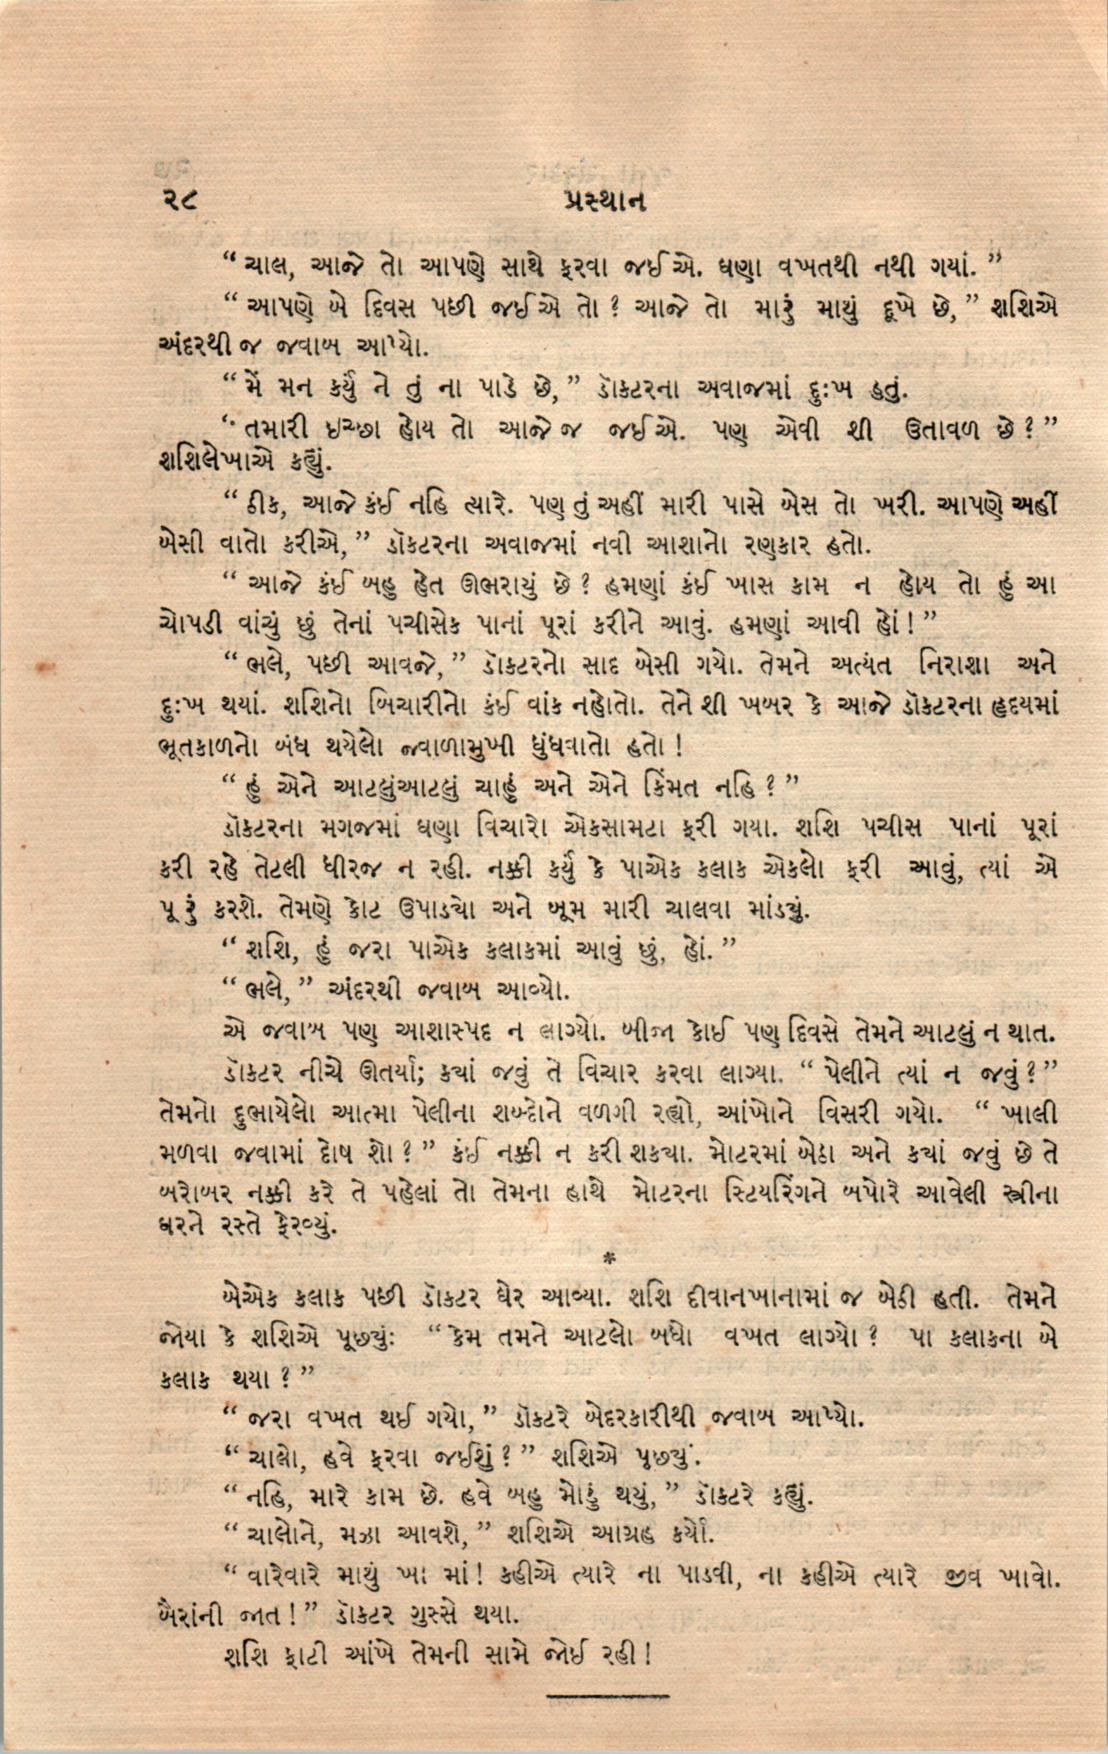 ૨૮ પ્રસ્થાન
“ ચાલ, આજે તો આપણે સાથે ફરવા જઈએ. ઘણા વખતથી નથી ગયાં. ”
“ આપણે બે દિવસ પછી જઈએ તો ? આજે તો મારું માથું દૂખે છે, ” શશિએ
અંદરથી જ જવાબ આપ્યો.
“ મેં મન કર્યું ને તું ના પાડે છે, ” ડૉક્ટરના અવાજમાં દુઃખ હતું.
“ તમારી ઇચ્છા હોય તો આજે જ જઈએ. પણ એવી શી ઉતાવળ છે ? ”
શશિલેખાએ કહ્યું.
“ ઠીક, આજે કંઈ નહિ ત્યારે. પણ તું અહીં મારી પાસે બેસ તો ખરી. આપણે અહીં
બેસી વાતો કરીએ, ” ડૉક્ટરના અવાજમાં નવી આશાનો રણકાર હતો.
“ આજે કંઈ બહુ હેત ઊભરાયું છે ? હમણાં કંઈ ખાસ કામ ન હોય તો હું આ
ચોપડી વાંચું છું તેનાં પચીસેક પાનાં પૂરાં કરીને આવું. હમણાં આવી હોં ! ”
“ ભલે, પછી આવજે, ” ડૉક્ટરનો સાદ બેસી ગયો. તેમને અત્યંત નિરાશા અને
દુઃખ થયાં. શશિનો બિચારીનો કંઈ વાંક નહોતો. તેને શી ખબર કે આજે ડૉક્ટરના હૃદયમાં
ભૂતકાળનો બંધ થયેલો જ્વાળામુખી ધુંધવાતો હતો !
“ હું એને આટલુંઆટલું ચાહું અને એને કિંમત નહિ ? ”
ડૉક્ટરના મગજમાં ઘણા વિચારો એકસામટા ફરી ગયા. શશિ પચીસ પાનાં પૂરાં
કરી રહે તેટલી ધીરજ ન રહી. નક્કી કર્યું કે પાએક કલાક એકલો ફરી આવું, ત્યાં એ
પૂરું કરશે. તેમણે કોટ ઉપાડ્યો અને બૂમ મારી ચાલવા માંડ્યું.
“ શશિ, હું જરા પાએક કલાકમાં આવું છું, હોં. ”
“ ભલે, ” અંદરથી જવાબ આવ્યો.
એ જવાબ પણ આશાસ્પદ ન લાગ્યો. બીજા કોઈ પણ દિવસે તેમને આટલું ન થાત.
ડૉક્ટર નીચે ઊતર્યા; ક્યાં જવું તે વિચાર કરવા લાગ્યા. “ પેલીને ત્યાં ન જવું ? ”
તેમનો દુભાયેલો આત્મા પેલીના શબ્દોને વળગી રહ્યો, આંખોને વિસરી ગયો. “ ખાલી
મળવા જવામાં દોષ શો ? ” કંઈ નક્કી ન કરી શક્યા. મોટરમાં બેઠા અને ક્યાં જવું છે તે
બરોબર નક્કી કરે તે પહેલાં તો તેમના હાથે મોટરના સ્ટિયરિંગને બપોરે આવેલી સ્ત્રીના
ઘરને રસ્તે ફેરવ્યું.
*
બેએક કલાક પછી ડૉક્ટર ઘેર આવ્યા. શશિ દીવાનખાનામાં જ બેઠી હતી. તેમને
જોયા કે શશિએ પૂછ્યુંઃ “ કેમ તમને આટલો બધો વખત લાગ્યો ? પા કલાકના બે
કલાક થયા ? ”
“ જરા વખત થઈ ગયો, ” ડૉક્ટરે બેદરકારીથી જવાબ આપ્યો.
“ ચાલો, હવે ફરવા જઈશું ? ” શશિએ પૂછ્યું.
“ નહિ, મારે કામ છે. હવે બહુ મોડું થયું, ” ડૉક્ટરે કહ્યું.
“ ચાલોને, મઝા આવશે, ” શશિએ આગ્રહ કર્યો.
“ વારેવારે માથું ખા માં ! કહીએ ત્યારે ના પાડવી, ના કહીએ ત્યારે જીવ ખાવો.
બૈરાંની જાત ! ” ડૉક્ટર ગુસ્સે થયા.
શશિ ફાટી આંખે તેમની સામે જોઈ રહી !